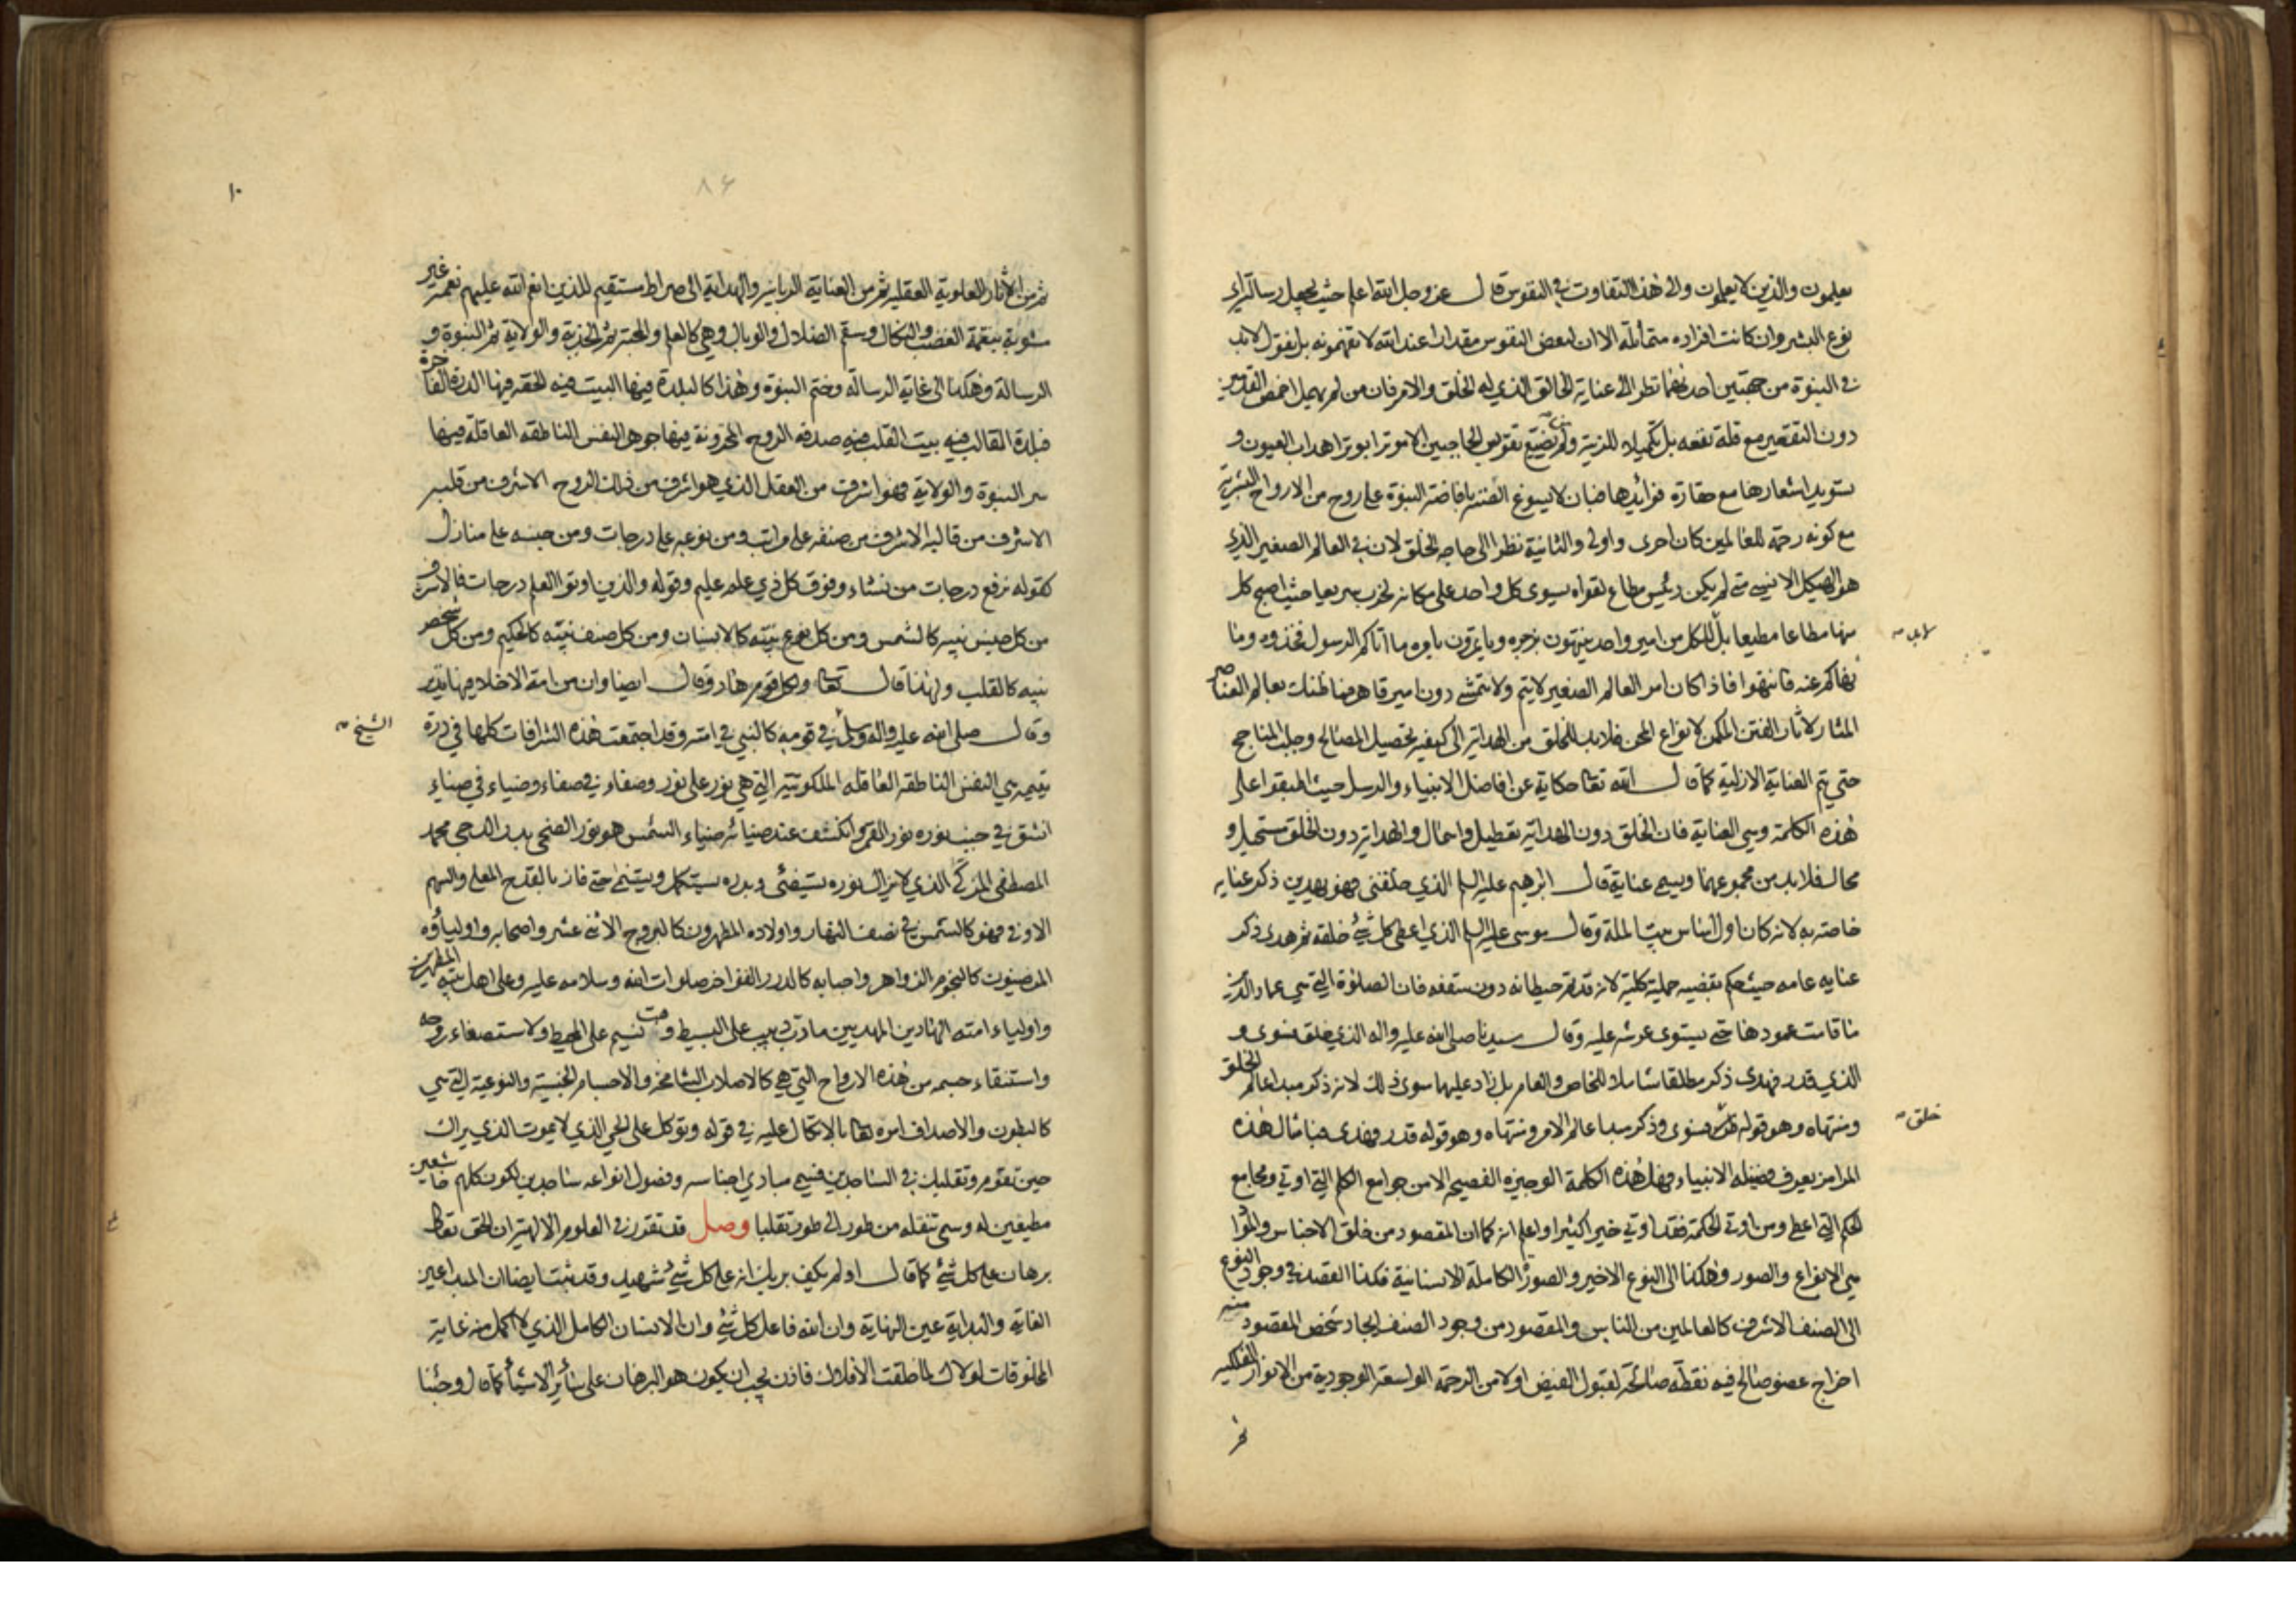 يعلمون والذين لا يعلمون والى هذا التفاوت في النفوس قال عز وجل الله اعلم حيث يجعل رسالته اي
نوع البشر وان كانت افراده متماثلة الا ان لبعض النفوس مقدارا عند الله لا تفهمونه بل نقول لابد
في النبوة من جهتين احدهما نظرا الى عناية الخالق الذي له الخلق والامر فان من لم يهمل اخمص القدمين
دون التقعير مع قلة نفعه بل تكميلا للزينة ولم يضيع تقويس الحاجبين اهداب العيون و
تسويد اشعارها مع حقارة فوائدها فبان لا يسوغ الضنة بافاضة النبوة على روح من الارواح البشرية
مع كونه رحمة للعالمين كان احرى واولى والثانية نظرا الى حاجة الخلق لان في العالم الصغير الذي
هو الهيكل الانسي متى لم يكن رئيس مطاع لقواه يسوى كل واحد على مكانه لخرب سريعا حيث اصبح كل
منها مطاعا مطيعا بل للكل من امير واحد ينتهون بزجره ويأتمرون بامره ما اتاكم الرسول فخذوه وما
لابد
نهاكم عنه فانتهوا فاذا كان امر العالم الصغير لا يتم ولا يتمشى دون امير قاهر فما ظنك بعالم العناصر
المثار لاثار الفتن الممكن لانواع المحن فلابد للخلق من الهداية الى كيفية تحصيل المصالح وجلب المناجح
حتى يتم العناية الازلية كما قال الله تعالى حكاية عن افاضل الانبياء والرسل حيث اتفقوا على
هذه الكلمة وهي العناية فان الخلق دون الهداية تعطيل واهمال والهداية دون الخلق مستحيل و
محال فلابد من مجموعهما ويسمى عناية قال ابرهيم عليه السلم الذي خلقني فهو يهدين ذكر عناية
خاصة به لانه كان اول الناس مبينا لملة وقال موسى عليه السلم الذي اعطى كل شئ خلقه ثم هدى ذكر
عناية عامة حيث حكم بقضية جملية كلية لانه قد تم حيطانه دون سقفه فان الصلوة التي هي عماد الدين
ما قامت عمودها حتى يستوى عرشه عليه وقال سيدنا صلى الله عليه واله الذي خلق فسوى و
الذي قدر فهدى ذكر مطلقا شاملا للخاص والعام بل زاد عليهما سوى ذلك لانه ذكر مبدا عالم الخلق
ومنتهاه وهو قوله فسوى وذكر مبدا عالم الامر ومنتهاه وهو قوله قدر فهدى فبامثال هذه
خلق
المرامز يعرف فضيلة الانبياء فهل هذه الكلمة الوجيزة الفصيحة الا من جوامع الكلم التي اوتي ومجامع
الحكم التي اعطى ومن اوتي الحكمة فقد اوتي خيرا كثيرا واعلم انه كما ان المقصود من خلق الاجناس والمواد
هي الانواع والصور وهكذا الى النوع الاخير والصورة الكاملة الانسانية فكذا القصد في وجود النوع
الى الصنف الاشرف كالعالمين من الناس والمقصود من وجود الصنف ايجاد شخص المقصود منه
اخراج عضو صالح فيه نقطة صالحة لقبول الفيض اولا من الرحمة الواسعة الوجودية من الانوار الفلكية
ثم
١٠
٨٤
ثم من الاثار العلوية العقلية ثم من العناية الربانية والهداية الى صراط مستقيم للذين انعم الله عليهم نعمة غير
مشوبة بنقمة الغضب والنكال وسقم الضلال والوبال وهي كالعلم والمحبة ثم الجذبة والولاية ثم النبوة و
الرسالة وهكذا الى غاية الرسالة وختم النبوة وهذا كالبلدة فيها البيت فيه الحقة فيها الدرة الفاخرة
فبلدة القالب فيه بيت القلب فيه صدفة الروح المخزونة فيها جوهر النفس الناطقة العاقلة فيها
سر النبوة والولاية فهو اشرف من العقل الذي هو اشرف من ذلك الروح الاشرف من قلبه
الاشرف من قالبه الاشرف من صنفه على مراتب ومن نوعه على درجات ومن جنسه على منازل
كقوله نرفع درجات من نشاء وفوق كل ذي علم عليم وقوله والذين اوتوا العلم درجات فالاشرف
من كل جنس نبيه كالشمس ومن كل نوع نبيه كالانسان ومن كل صنف نبيه كالحكيم ومن كل شخص
نبيه كالقلب ولهذا قال تعالى ولكل قوم هاد وقال ايضا وان من امة الا خلا فيها نذير
وقال صلى الله عليه واله وسلم في قومه كالنبي في امته وقد اجتمعت هذه الشرافات كلها في درة
الشيخ
يتيمة هي النفس الناطقة العاقلة الملكوتية التي هي نور على نور وصفاء في صفاء وضياء في ضياء
انشق في جنب نوره نور القمر وانكسف عند ضيائه ضياء الشمس هو نور الضحى بدر الدجى محمد
المصطفى المزكى الذي لا يزال نوره يستضئ وبدره يستكمل ويستنمي حتى فاز بالقدح المعلى والسهم
الاوفى فهو كالشمس في نصف النهار واولاده المطهرون كالبروج الاثني عشر واصحابه واولياؤه
المرضيون كالنجوم الزواهر واحبابه كالدرر الفواخر صلوات الله وسلامه عليه وعلى اهل بيته المطهرين
واولياء امته الهادين المهديين ما دب دبيب على البسيط وهب نسيم على المحيط ولاستصفاء روحه
واستنقاء جسمه من هذه الارواح التي هي كالاصلاب الشامخة والاجسام الجنسية والنوعية التي هي
كالبطون والاصداف امره تعالى بالاتكال عليه في قوله وتوكل على الحي الذي لا يموت الذي يراك
حين تقوم وتقلبك في الساجدين فسمى مبادي اجناسه وفصول انواعه ساجدين لكون كلهم خاشعين
مطيعين له وسمى تنقله من طور الى طور تقلبا وصل قد تقرر في العلوم الالهية ان الحق تعالى
برهان على كل شئ كما قال اولم يكف بربك انه على كل شئ شهيد وقد ثبت ايضا ان المبدا عين
الغاية والبداية عين النهاية وان الله فاعل كل شئ وان الانسان الكامل الذي لا اكمل منه غاية
المخلوقات لولاك لما خلقت الافلاك فاذن يجب ان يكون هو البرهان على سائر الاشياء كما قال وجئنا